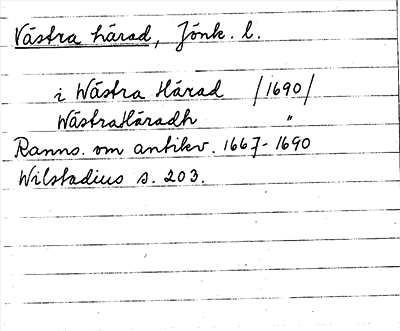 Västra härad, Jönk. l.
i Wästra Härad /1690/
Wästra Häradh "
Ranns. om antikv. 1667-1690
Wilstadius s. 203.